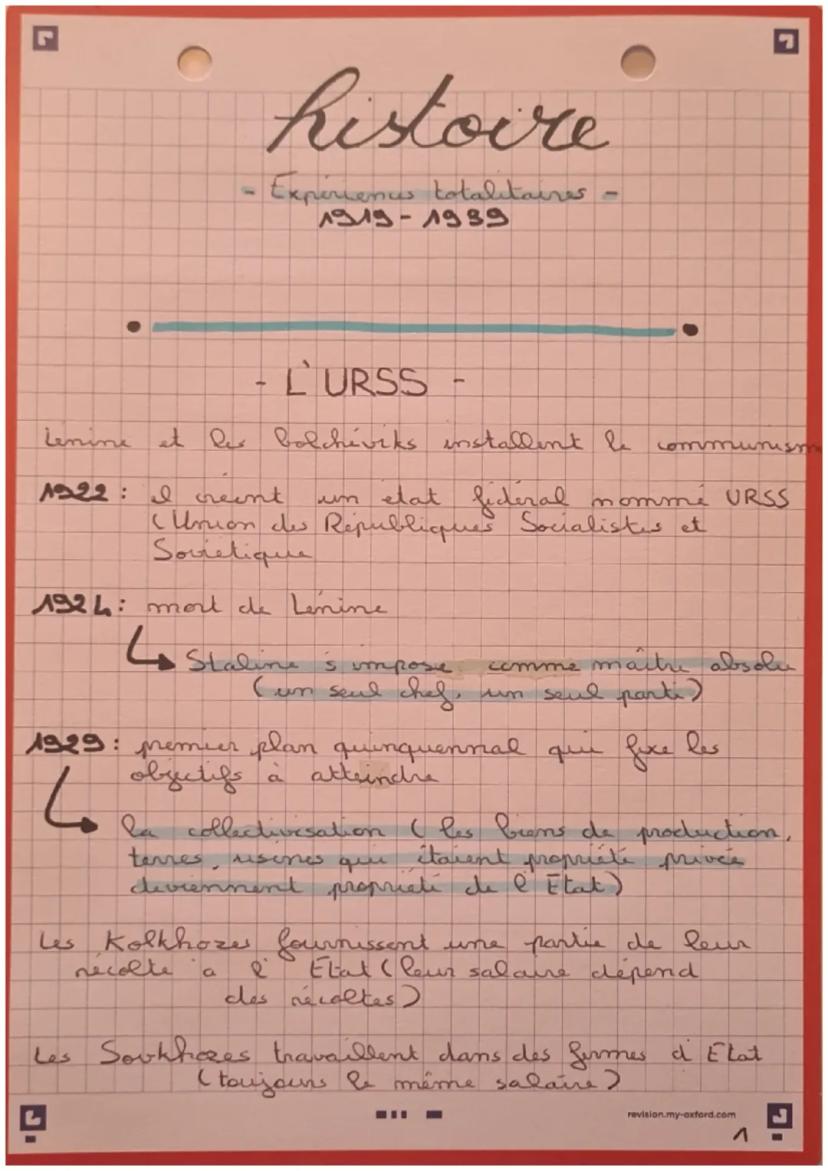 histoire
- Expériences totalitaires -
1919 - 1939
- L'URSS -
Lénine et les bolchéviks installent le communism
1922 : il créent un état fédéral nommé URSS
(Union des Républiques Socialistes et
Soviétique
1924 : mort de Lénine
Staline s'impose comme maître absolu
(un seul chef, un seul parti)
1929 : premier plan quinquennal qui fixe les
objectifs à atteindre
la collectivisation (les biens de production,
terres, usines qui étaient propriété privée
deviennent propriété de l'État)
Les Kolkhozes fournissent une partie de leur
récolte à l'État (leur salaire dépend
des récoltes)
Les Sovkhozes travaillent dans des fermes d'État
(toujours le même salaire)
revision.my-oxford.com
1